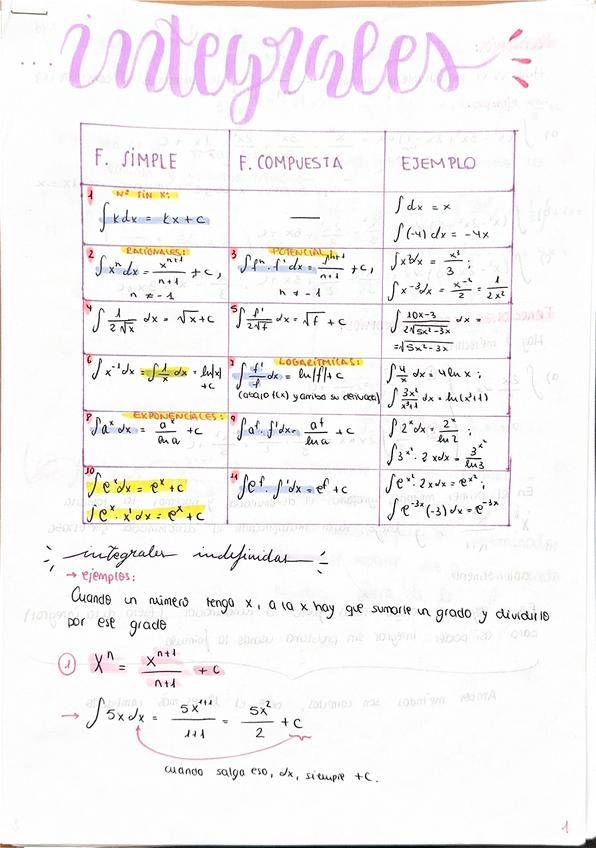 integrales
F. SIMPLE F. COMPUESTA EJEMPLO
1 Nº SIN X:
∫kdx = kx + c — ∫dx = x
∫(-4) dx = -4x
2 RACIONALES: 3 POTENCIAL
∫xⁿdx = xⁿ⁺¹/n+1 + c, ∫fⁿ · f' dx = fⁿ⁺¹/n+1 + c, ∫x²dx = x³/3 ;
n ≠ -1 n ≠ -1 ∫x⁻³dx = x⁻²/2 = 1/2x²
4 ∫ 1/2√x dx = √x + c 5 ∫ f'/2√f dx = √f + c ∫ 10x-3/2√5x²-3x dx =
= √5x²-3x
6 ∫x⁻¹dx = ∫ 1/x dx = ln|x| + c 7 LOGARÍTMICAS:
∫ f'/f dx = ln|f| + c ∫ 4/x dx = 4 ln x ;
(abajo f(x) y arriba su derivada) ∫ 3x²/x³+1 dx = ln(x³+1)
8 EXPONENCIALES:
∫aˣ dx = aˣ/ln a + c 9 ∫aᶠ · f' dx = aᶠ/ln a + c ∫2ˣ dx = 2ˣ/ln 2 ;
∫3ˣ² · 2x dx = 3ˣ²/ln 3
10 ∫eˣ dx = eˣ + c 11 ∫eᶠ · f' dx = eᶠ + c ∫eˣ² · 2x dx = eˣ² ;
∫eˣ · x' dx = eˣ + c ∫e⁻³ˣ (-3) dx = e⁻³ˣ
integrales indefinidas
→ ejemplos:
Cuando un número tenga x, a la x hay que sumarle un grado y dividirlo
por ese grado
1 Xⁿ = xⁿ⁺¹/n+1 + c
→ ∫5x dx = 5x¹⁺¹/1+1 = 5x²/2 + c
cuando salga eso, dx, siempre +c.
1